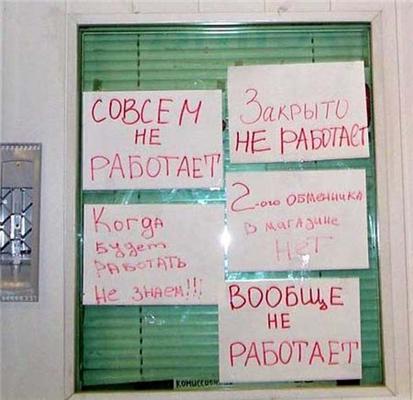 СОВСЕМ
НЕ
РАБОТАЕТ
Закрыто
НЕ РАБОТАЕТ
Когда
будет
РАБОТАТЬ
Не знаем!!!
2-ого обменника
в магазине
НЕТ
ВООБЩЕ
НЕ
РАБОТАЕТ